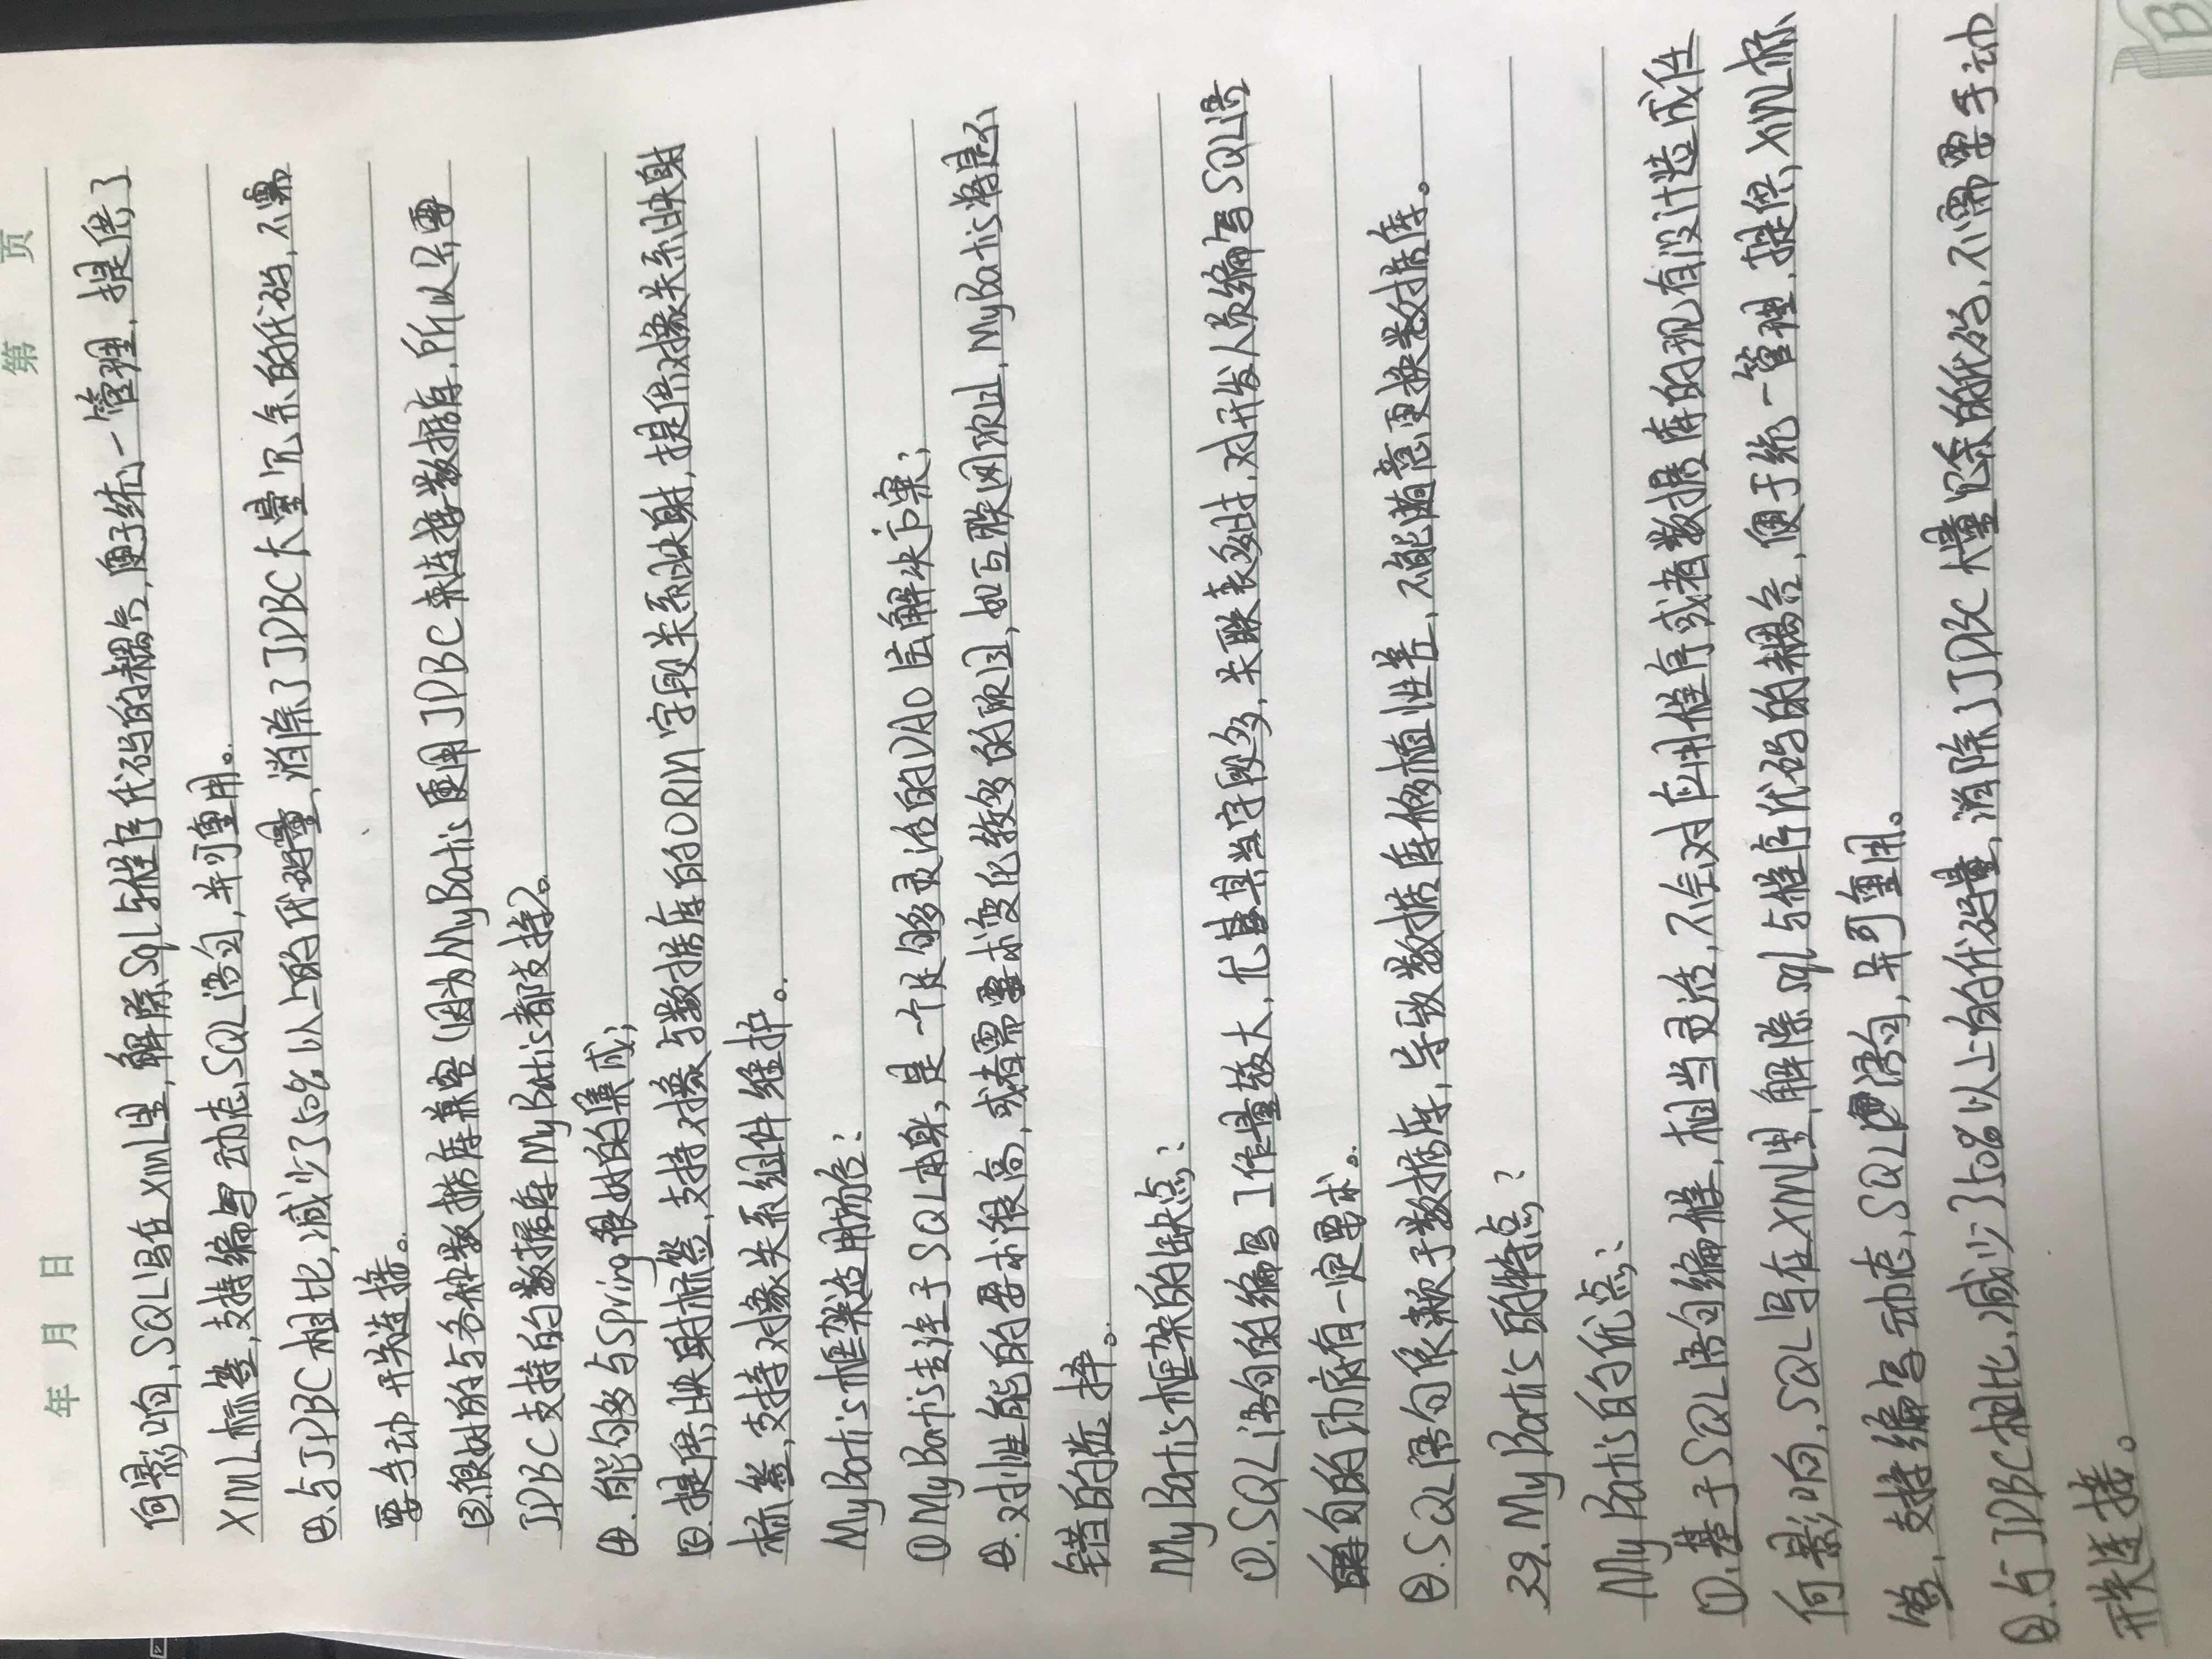 第 页
年 月 日
何影响,SQL写在XML里,解除Sql与程序代码的耦合,便于统一管理.提供了
XML标签,支持编写动态,SQL语句,并可重用。
②.与JDBC相比,减少了50%以上的代码量,消除了JDBC大量冗余的代码,不需
要手动开关连接。
③.很好的与各种数据库兼容(因为MyBatis使用JDBC来连接数据库,所以只要
JDBC支持的数据库MyBatis都支持)。
④.能够多与Spring很好的集成;
⑤.提供映射标签,支持对象与数据库的ORM字段关系映射,提供对象关系映射
标签,支持对象关系组件维护。
MyBatis框架适用场合:
①MyBatis专注于SQL本身,是一个足够灵活的DAO层解决方案;
②.对性能的要求很高,或者需要求变化较多的项目,如互联网项目,MyBatis将是不
错的选择。
MyBatis框架的缺点:
①.SQL语句的编写工作量较大,尤其当字段多,关联表多时,对开发人员编写SQL语
句的功底有一定要求。
②.SQL语句依赖于数据库,导致数据库移植性差,不能随意更换数据库。
39.MyBatis的特点?
MyBatis的优点:
①.基于SQL语句编程,相当灵活,不会对应用程序或者数据库的现有设计造成任
何影响,SQL写在XML里,解除sql与程序代码的耦合,便于统一管理.提供XML标
签,支持编写动态,SQL语句,并可重用。
②.与JDBC相比,减少了50%以上的代码量,消除了JDBC大量冗余的代码,不需要手动
开关连接。
B